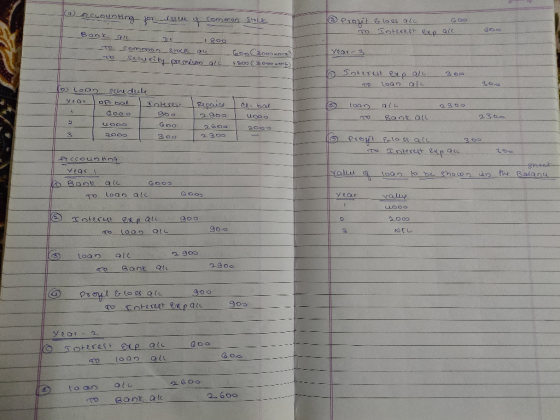 (a) Accounting for issue of common stock
Bank a/c Dr 1800
To common stock a/c 600
To security premium a/c 1200
b) Loan schedule
Year Op bal Interest Repaid Cl. bal
1 6000 900 2900 4000
2 4000 600 2600 2000
3 2000 300 2300 —
Accounting
Year 1
① Bank a/c 6000
To loan a/c 6000
② Interest exp a/c 900
To loan a/c 900
③ loan a/c 2900
To Bank a/c 2900
④ Profit & loss a/c 900
To Interest exp a/c 900
Year - 2
① Interest exp a/c 600
To loan a/c 600
② loan a/c 2600
To Bank a/c 2600
③ Profit & loss a/c 600
To Interest exp a/c 600
Year - 3
① Interest exp a/c 300
To loan a/c 300
② loan a/c 2300
To Bank a/c 2300
③ Profit & loss a/c 300
To Interest exp a/c 300
Value of loan to be shown in the Balance sheet
year value
1 4000
2 2000
3 NIL